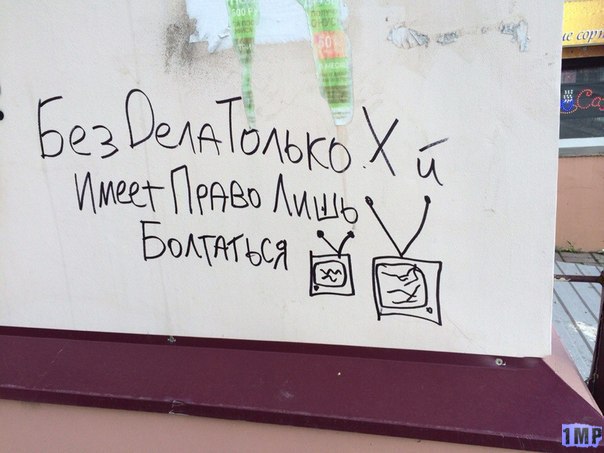 Без Dела Только Х й
Имеет Право Лишь
Болтаться
1MP